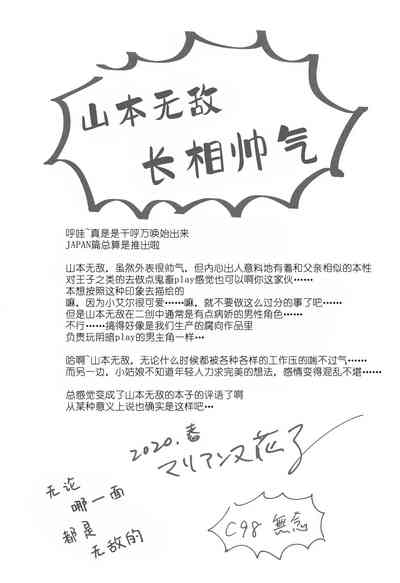 山本无敌
长相帅气
呼哇~真是是千呼万唤始出来
JAPAN篇总算是推出啦
山本无敌，虽然外表很帅气，但内心出人意料地有着和父亲相似的本性
对王子之类的去做点鬼畜play感觉也可以啊你这家伙…
本想按照这种印象去描绘的
嘛，因为小艾尔很可爱……嘛，就不要做这么过分的事了吧……
但是山本无敌在二创中通常是有点病娇的男性角色……
不行……搞得好像是我们生产的腐向作品里
负责玩阴暗play的男主角一样…
哈啊~山本无敌，无论什么时候都被各种各样的工作压的喘不过气……
而另一边，小姑娘不知道年轻人力求完美的想法，感情变得混乱不堪……
总感觉变成了山本无敌的本子的评语了啊
从某种意义上说也确实是这样吧…
2020.春
マリアンヌ花子
无论
哪一面
都是
无敌的
C98 無念